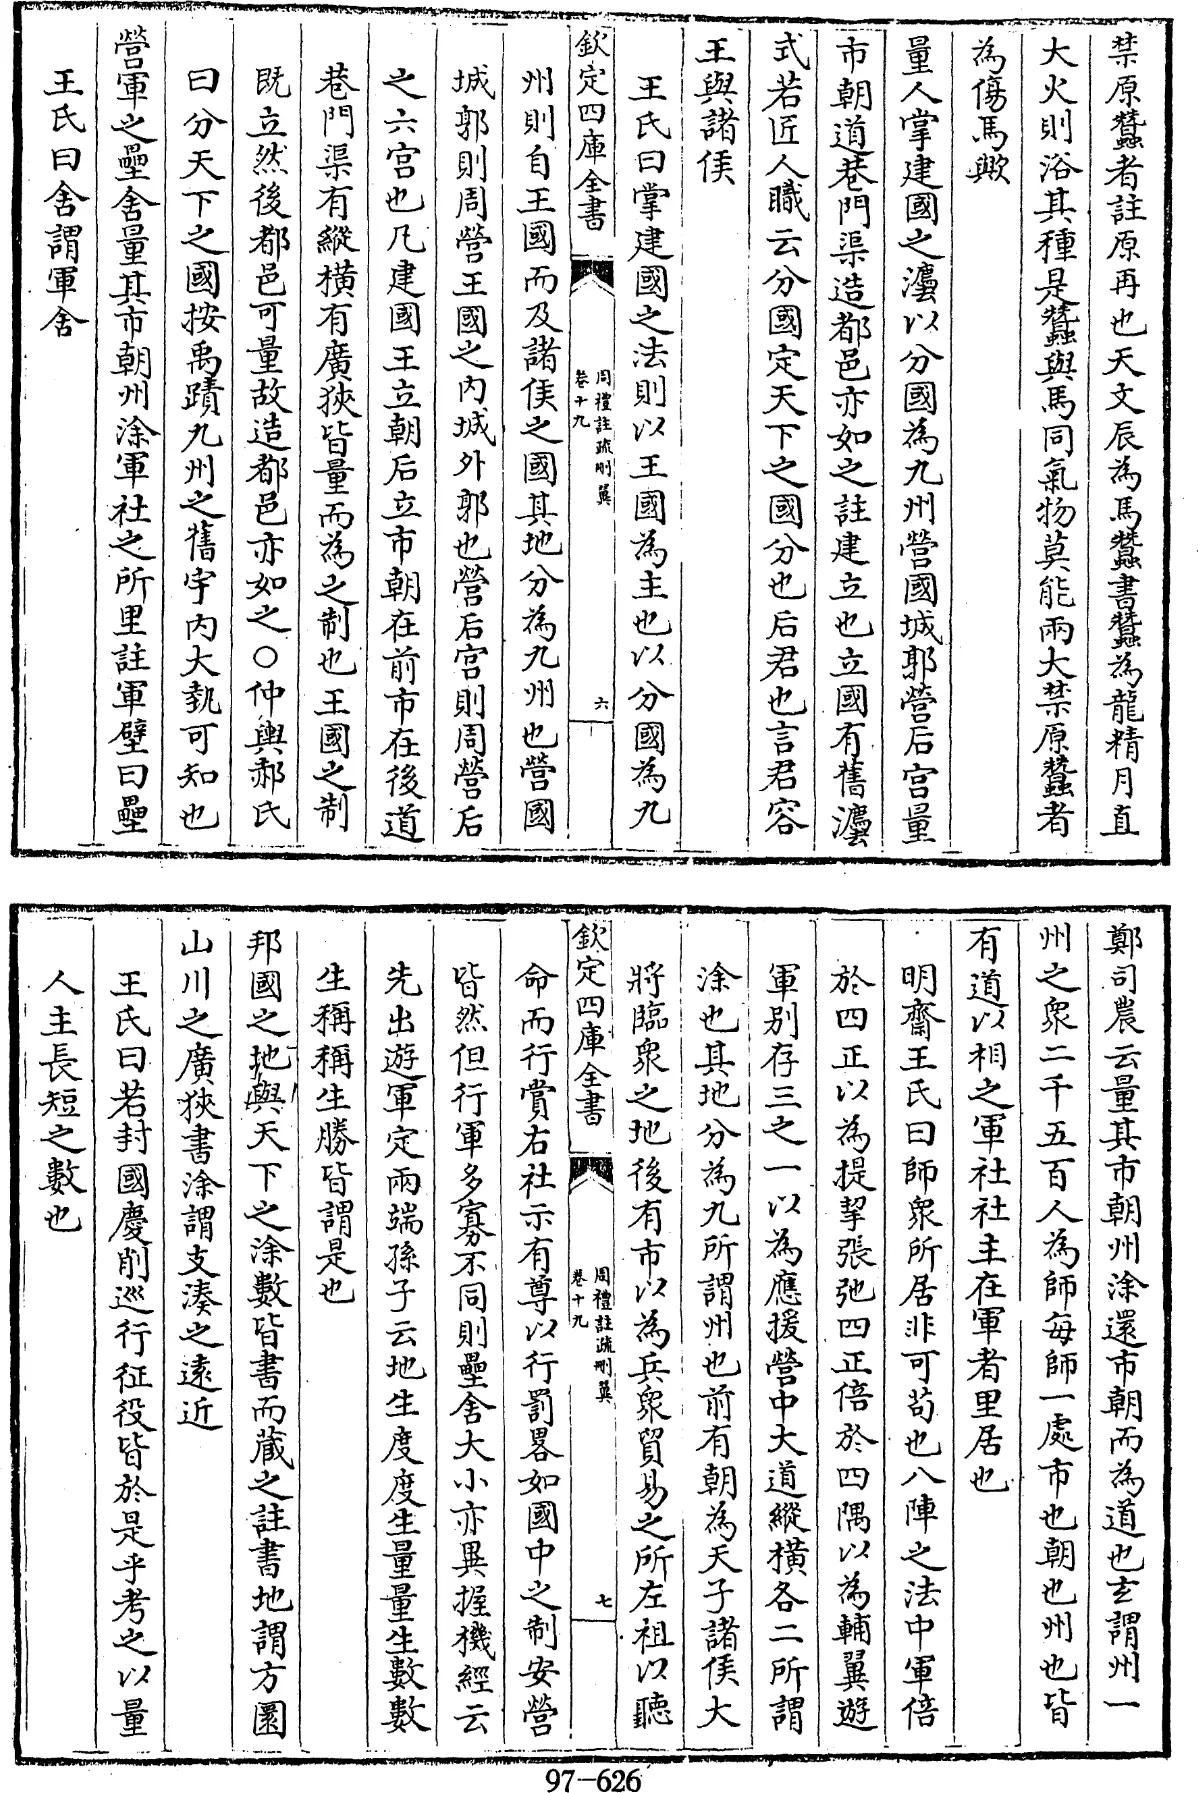 禁原蠶者註原再也天文辰為馬蠶書蠶為龍精月直
大火則浴其種是蠶與馬同氣物莫能兩大禁原蠶者
為傷馬歟
量人掌建國之灋以分國為九州營國城郭營后宮量
市朝道巷門渠造都邑亦如之註建立也立國有舊灋
式若匠人職云分國定天下之國分也后君也言君容
王與諸侯
王氏曰掌建國之法則以王國為主也以分國為九
欽定四庫全書
周禮註疏刪翼
卷十九
六
州則自王國而及諸侯之國其地分為九州也營國
城郭則周營王國之内城外郭也營后宮則周營后
之六宮也凡建國王立朝后立市朝在前市在後道
巷門渠有縱橫有廣狹皆量而為之制也王國之制
既立然後都邑可量故造都邑亦如之○仲輿郝氏
曰分天下之國按禹蹟九州之舊宇内大埶可知也
營軍之壘舍量其市朝州涂軍社之所里註軍壁曰壘
王氏曰舍謂軍舍
鄭司農云量其市朝州涂還市朝而為道也玄謂州一
州之衆二千五百人為師每師一處市也朝也州也皆
有道以相之軍社社主在軍者里居也
明齋王氏曰師衆所居非可苟也八陣之法中軍倍
於四正以為提挈張弛四正倍於四隅以為輔翼遊
軍別存三之一以為應援營中大道縱橫各二所謂
涂也其地分為九所謂州也前有朝為天子諸侯大
將臨衆之地後有市以為兵衆貿易之所左祖以聽
欽定四庫全書
周禮註疏刪翼
卷十九
七
命而行賞右社示有尊以行罰畧如國中之制安營
皆然但行軍多寡不同則壘舍大小亦異握機經云
先出遊軍定兩端孫子云地生度度生量量生數數
生稱稱生勝皆謂是也
邦國之地與天下之涂數皆書而藏之註書地謂方圜
山川之廣狹書涂謂支湊之遠近
王氏曰若封國慶削巡行征役皆於是乎考之以量
人主長短之數也
97-626